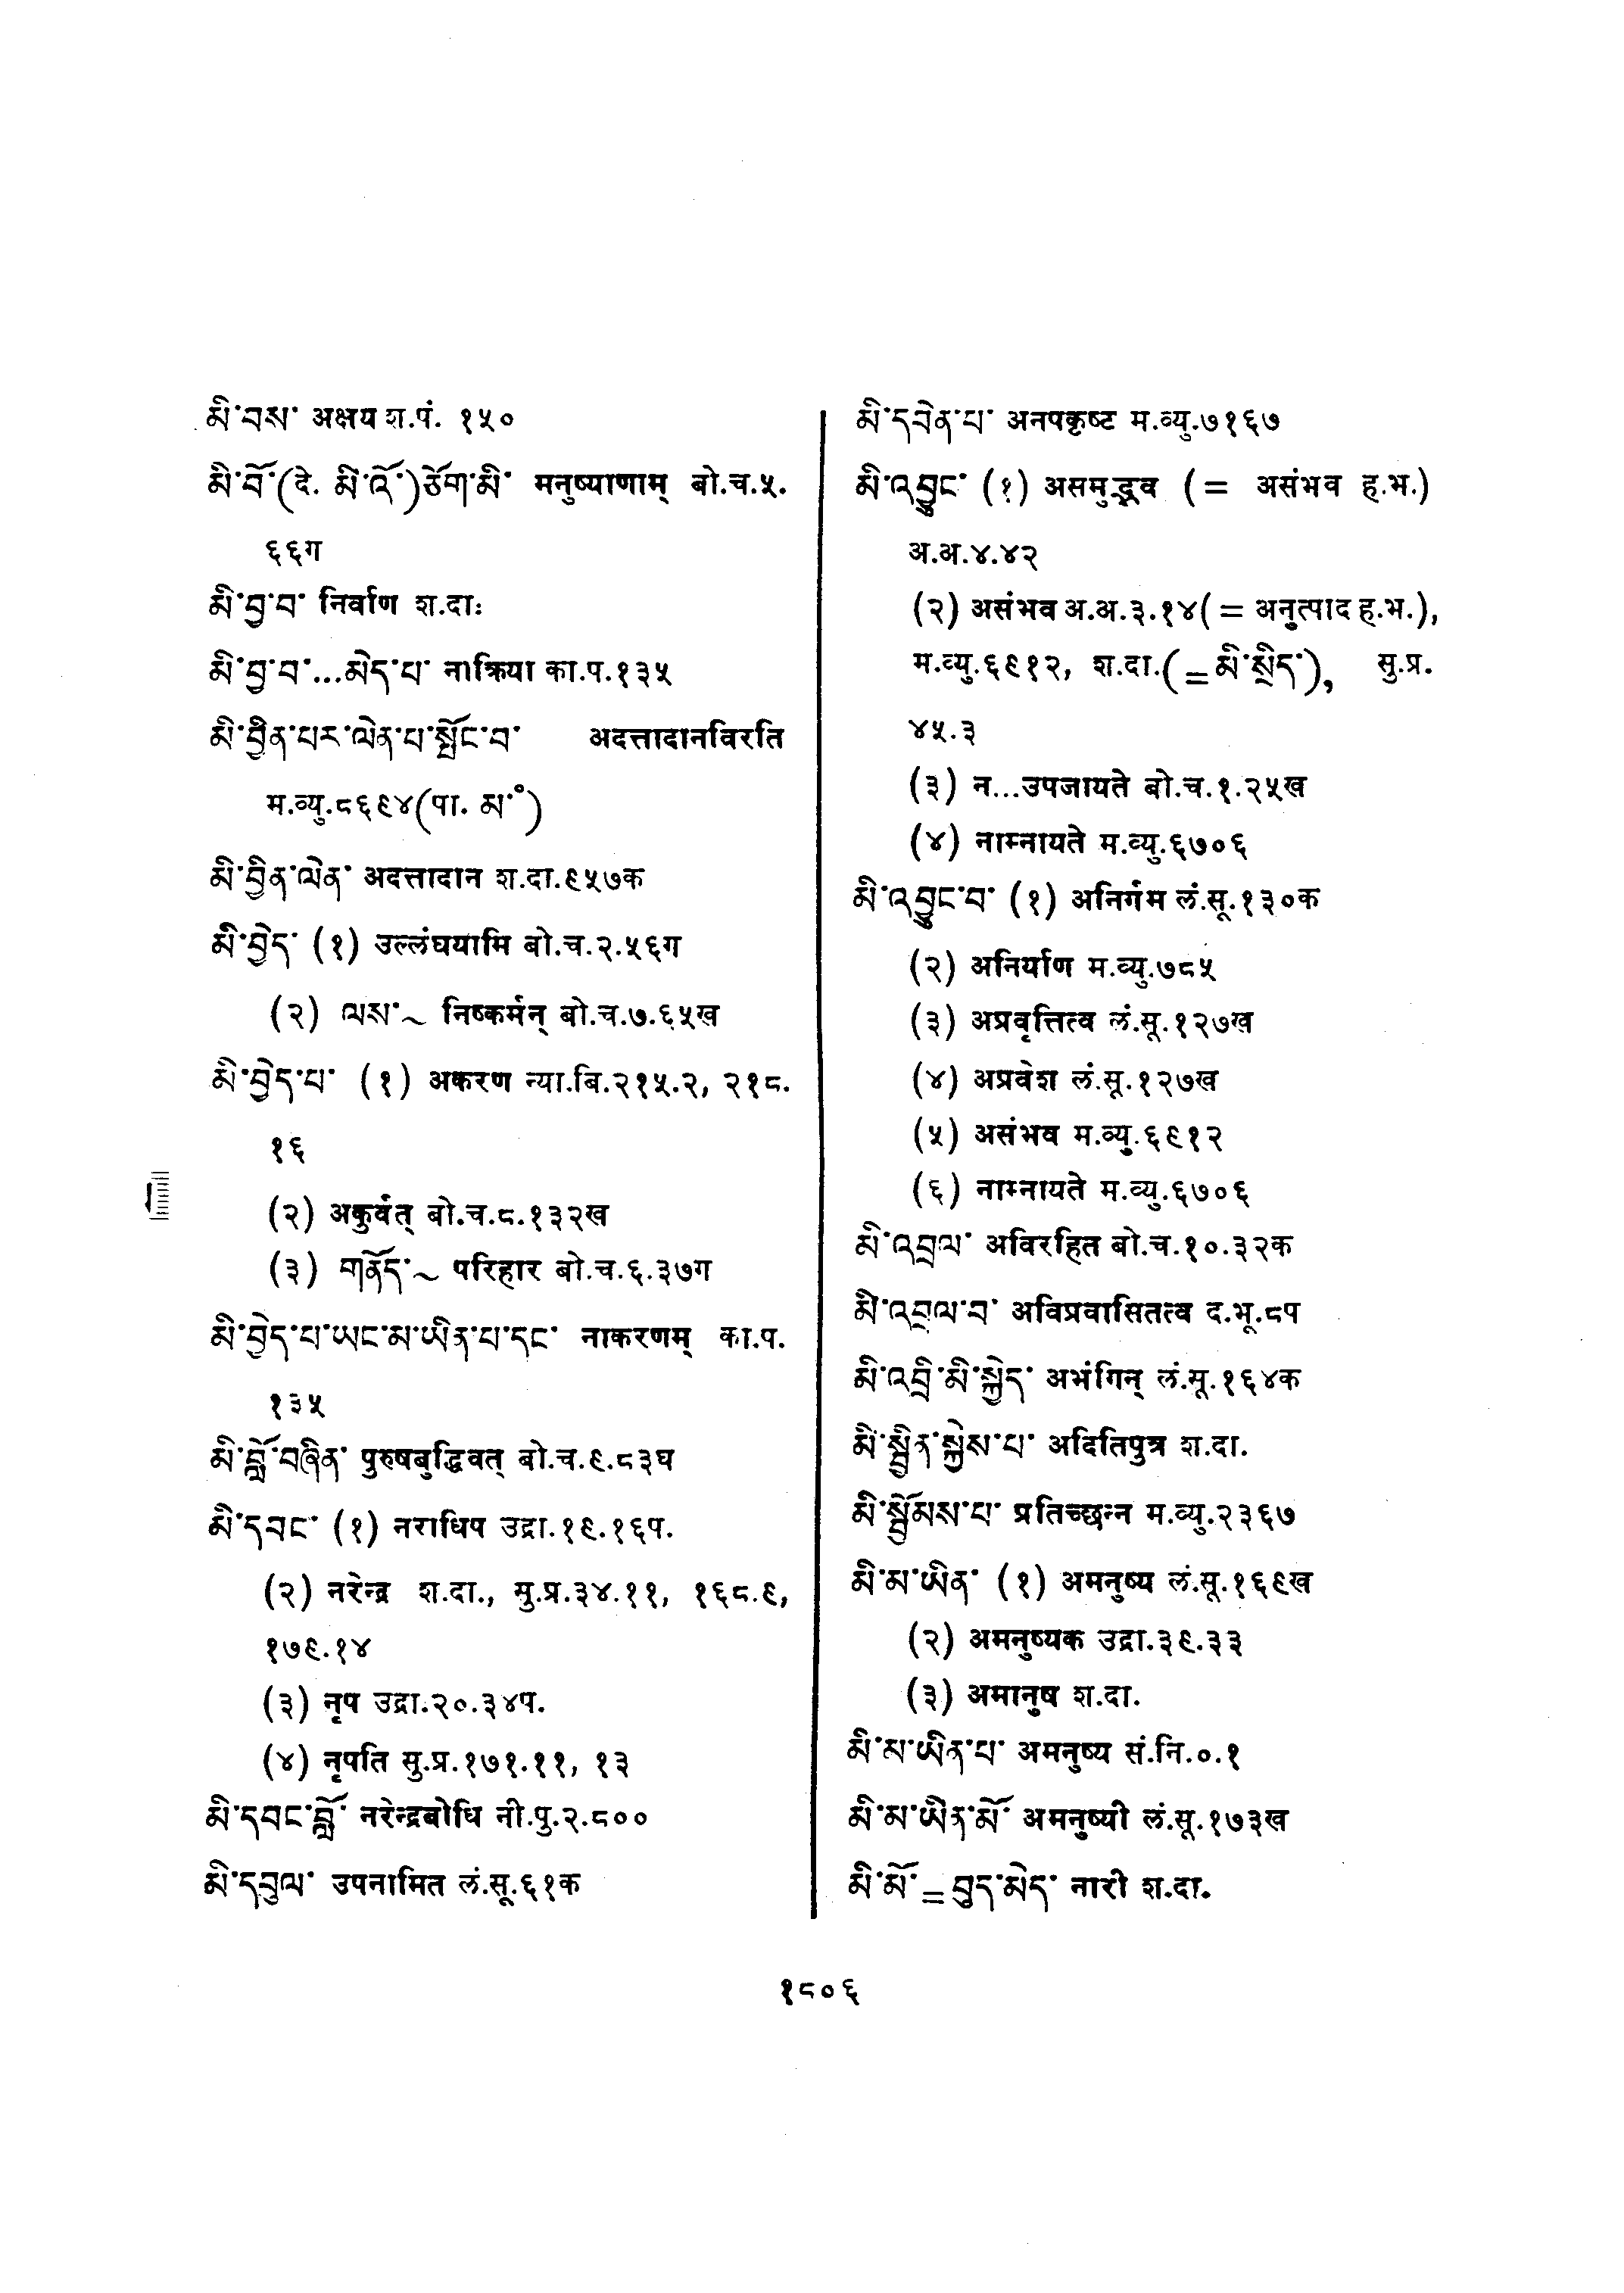 མི་བས་ अक्षय श.पं. १५०
མི་བོ་(दे. མི་འོ་)ཙོག་མི་ मनुष्याणाम् बो.च.५.
६६ग
མི་བྱ་བ་ निर्वाण श.दा.
མི་བྱ་བ་...མེད་པ་ नाक्रिया का.प.१३५
མི་བྱིན་པར་ལེན་པ་སྤོང་བ་ अदत्तादानविरति
म.व्यु.८६९४(पा. མ་°)
མི་བྱིན་ལེན་ अदत्तादान श.दा.९५७क
མི་བྱེད་ (१) उल्लंघयामि बो.च.२.५६ग
(२) ལས་~ निष्कर्मन् बो.च.७.६५ख
མི་བྱེད་པ་ (१) अकरण न्या.बि.२१५.२, २१८.
१६
(२) अकुर्वत् बो.च.८.१३२ख
(३) གནོད་~ परिहार बो.च.६.३७ग
མི་བྱེད་པ་ཡང་མ་ཡིན་པ་དང་ नाकरणम् का.प.
१३५
མི་བློ་བཞིན་ पुरुषबुद्धिवत् बो.च.९.८३घ
མི་དབང་ (१) नराधिप उद्रा.१९.१६प.
(२) नरेन्द्र श.दा., सु.प्र.३४.११, १६८.९,
१७९.१४
(३) नृप उद्रा.२०.३४प.
(४) नृपति सु.प्र.१७१.११, १३
མི་དབང་བློ་ नरेन्द्रबोधि नी.पु.२.८००
མི་དབུལ་ उपनामित लं.सू.६१क
མི་དབེན་པ་ अनपकृष्ट म.व्यु.७१६७
མི་འབྱུང་ (१) असमुद्भव (= असंभव ह.भ.)
अ.अ.४.४२
(२) असंभव अ.अ.३.१४(= अनुत्पाद ह.भ.),
म.व्यु.६९१२, श.दा.(=མི་སྲིད་), सु.प्र.
४५.३
(३) न...उपजायते बो.च.१.२५ख
(४) नाम्नायते म.व्यु.६७०६
མི་འབྱུང་བ་ (१) अनिर्गम लं.सू.१३०क
(२) अनिर्याण म.व्यु.७८५
(३) अप्रवृत्तित्व लं.सू.१२७ख
(४) अप्रवेश लं.सू.१२७ख
(५) असंभव म.व्यु.६९१२
(६) नाम्नायते म.व्यु.६७०६
མི་འབྲལ་ अविरहित बो.च.१०.३२क
མི་འབྲལ་བ་ अविप्रवासितत्व द.भू.८प
མི་འབྲི་མི་སྐྱེད་ अभंगिन् लं.सू.१६४क
མི་སྦྱིན་སྐྱེས་པ་ अदितिपुत्र श.दा.
མི་སྦྱོམས་པ་ प्रतिच्छन्न म.व्यु.२३६७
མི་མ་ཡིན་ (१) अमनुष्य लं.सू.१६९ख
(२) अमनुष्यक उद्रा.३९.३३
(३) अमानुष श.दा.
མི་མ་ཡིན་པ་ अमनुष्य सं.नि.०.१
མི་མ་ཡིན་མོ་ अमनुष्यी लं.सू.१७३ख
མི་མོ་=བུད་མེད་ नारी श.दा.
१८०६